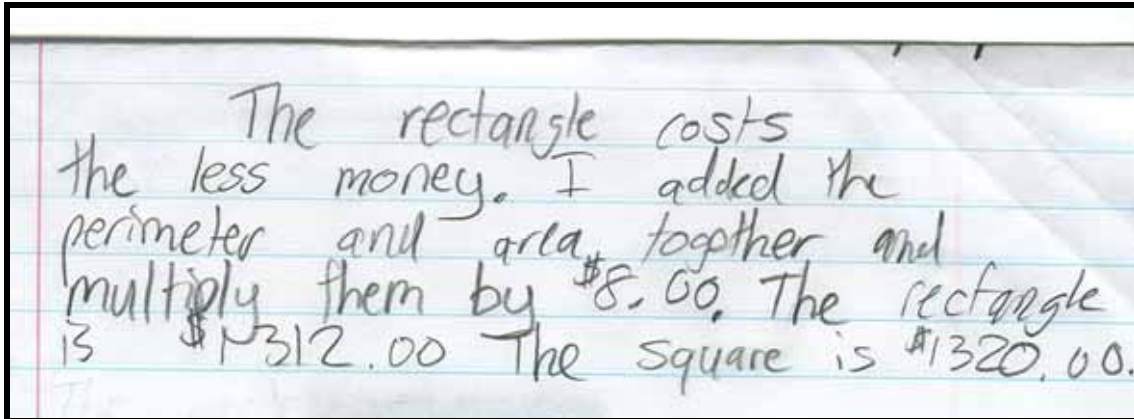 The rectangle costs
the less money. I added the
perimeter and area together and
multiply them by $8.00. The rectangle
is $1312.00 The square is $1320.00.